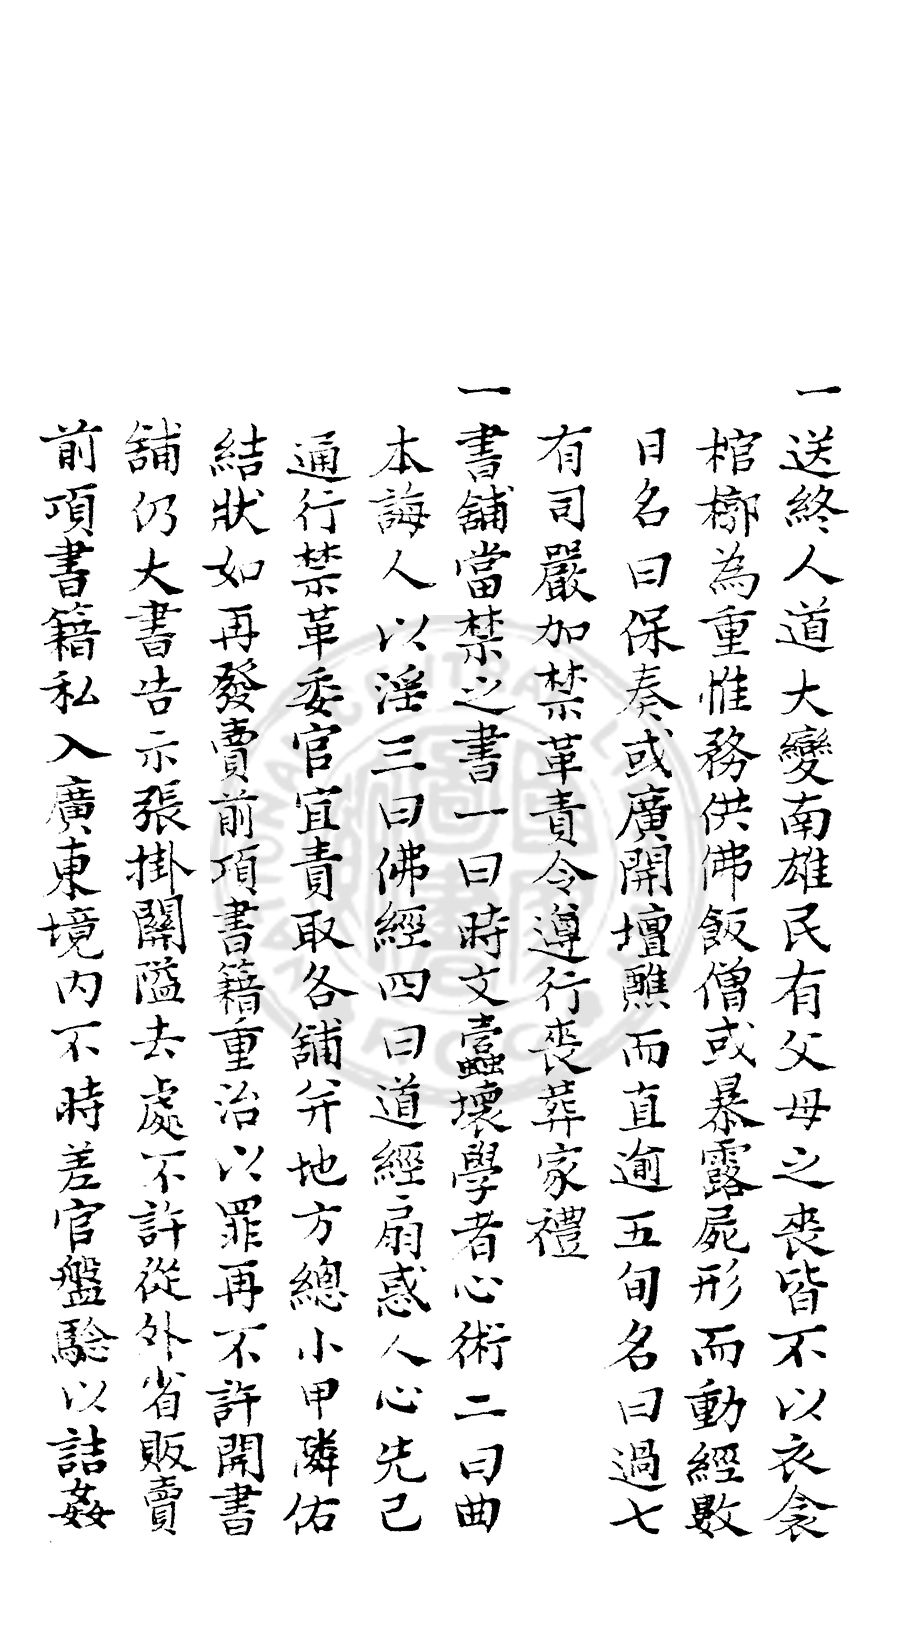 一送終人道大變南雄民有父母之喪皆不以衣衾
棺槨為重惟務供佛飯僧或暴露屍形而動經數
日名曰保奏或廣開壇醮而直逾五旬名曰過七
有司嚴加禁革責令遵行喪葬家禮
一書舖當禁之書一曰時文蠹壞學者心術二曰曲
本誨人以淫三曰佛經四曰道經扇惑人心先已
通行禁革委官宜責取各舖并地方總小甲隣佑
結狀如再發賣前項書籍重治以罪再不許開書
舖仍大書告示張掛關隘去處不許從外省販賣
前項書籍私入廣東境內不時差官盤驗以詰姦